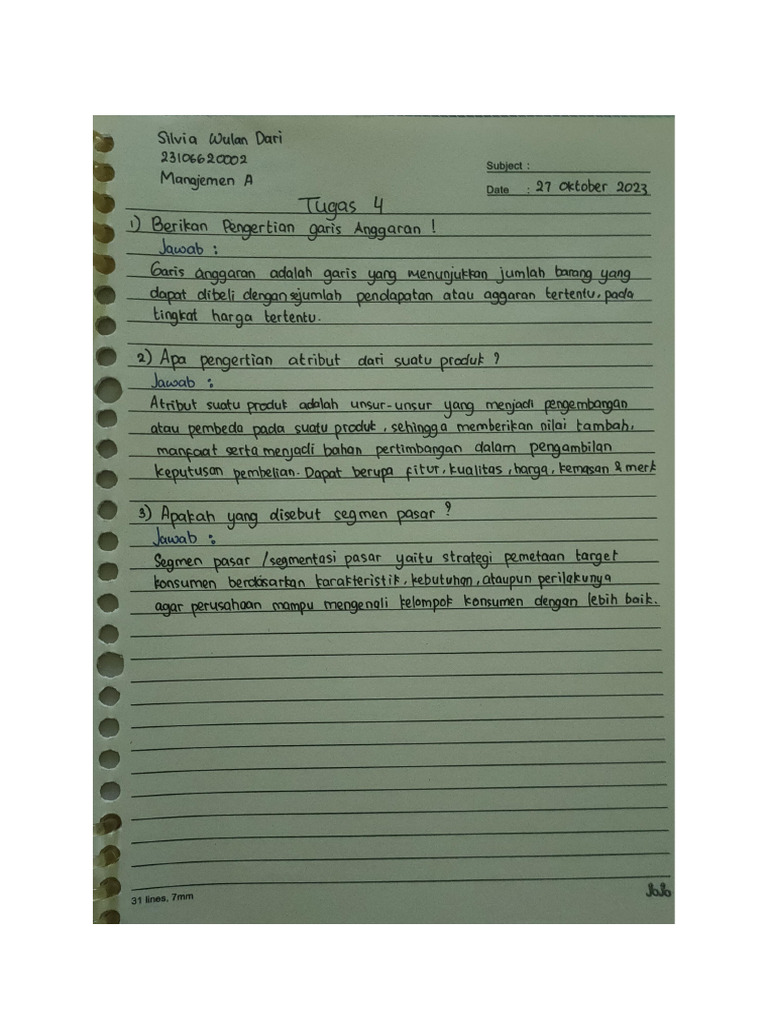 Silvia Wulan Dari
23106620002
Manajemen A
Subject :
Date : 27 Oktober 2023
Tugas 4
1) Berikan Pengertian garis Anggaran !
Jawab :
Garis anggaran adalah garis yang menunjukkan jumlah barang yang
dapat dibeli dengan sejumlah pendapatan atau aggaran tertentu, pada
tingkat harga tertentu.
2) Apa pengertian atribut dari suatu produk ?
Jawab :
Atribut suatu produk adalah unsur-unsur yang menjadi pengembangan
atau pembeda pada suatu produk, sehingga memberikan nilai tambah,
manfaat serta menjadi bahan pertimbangan dalam pengambilan
keputusan pembelian. Dapat berupa fitur, kualitas, harga, kemasan & merk
3) Apakah yang disebut segmen pasar ?
Jawab :
Segmen pasar /segmentasi pasar yaitu strategi pemetaan target
konsumen berdasarkan karakteristik, kebutuhan, ataupun perilakunya
agar perusahaan mampu mengenali kelompok konsumen dengan lebih baik.
31 lines, 7mm